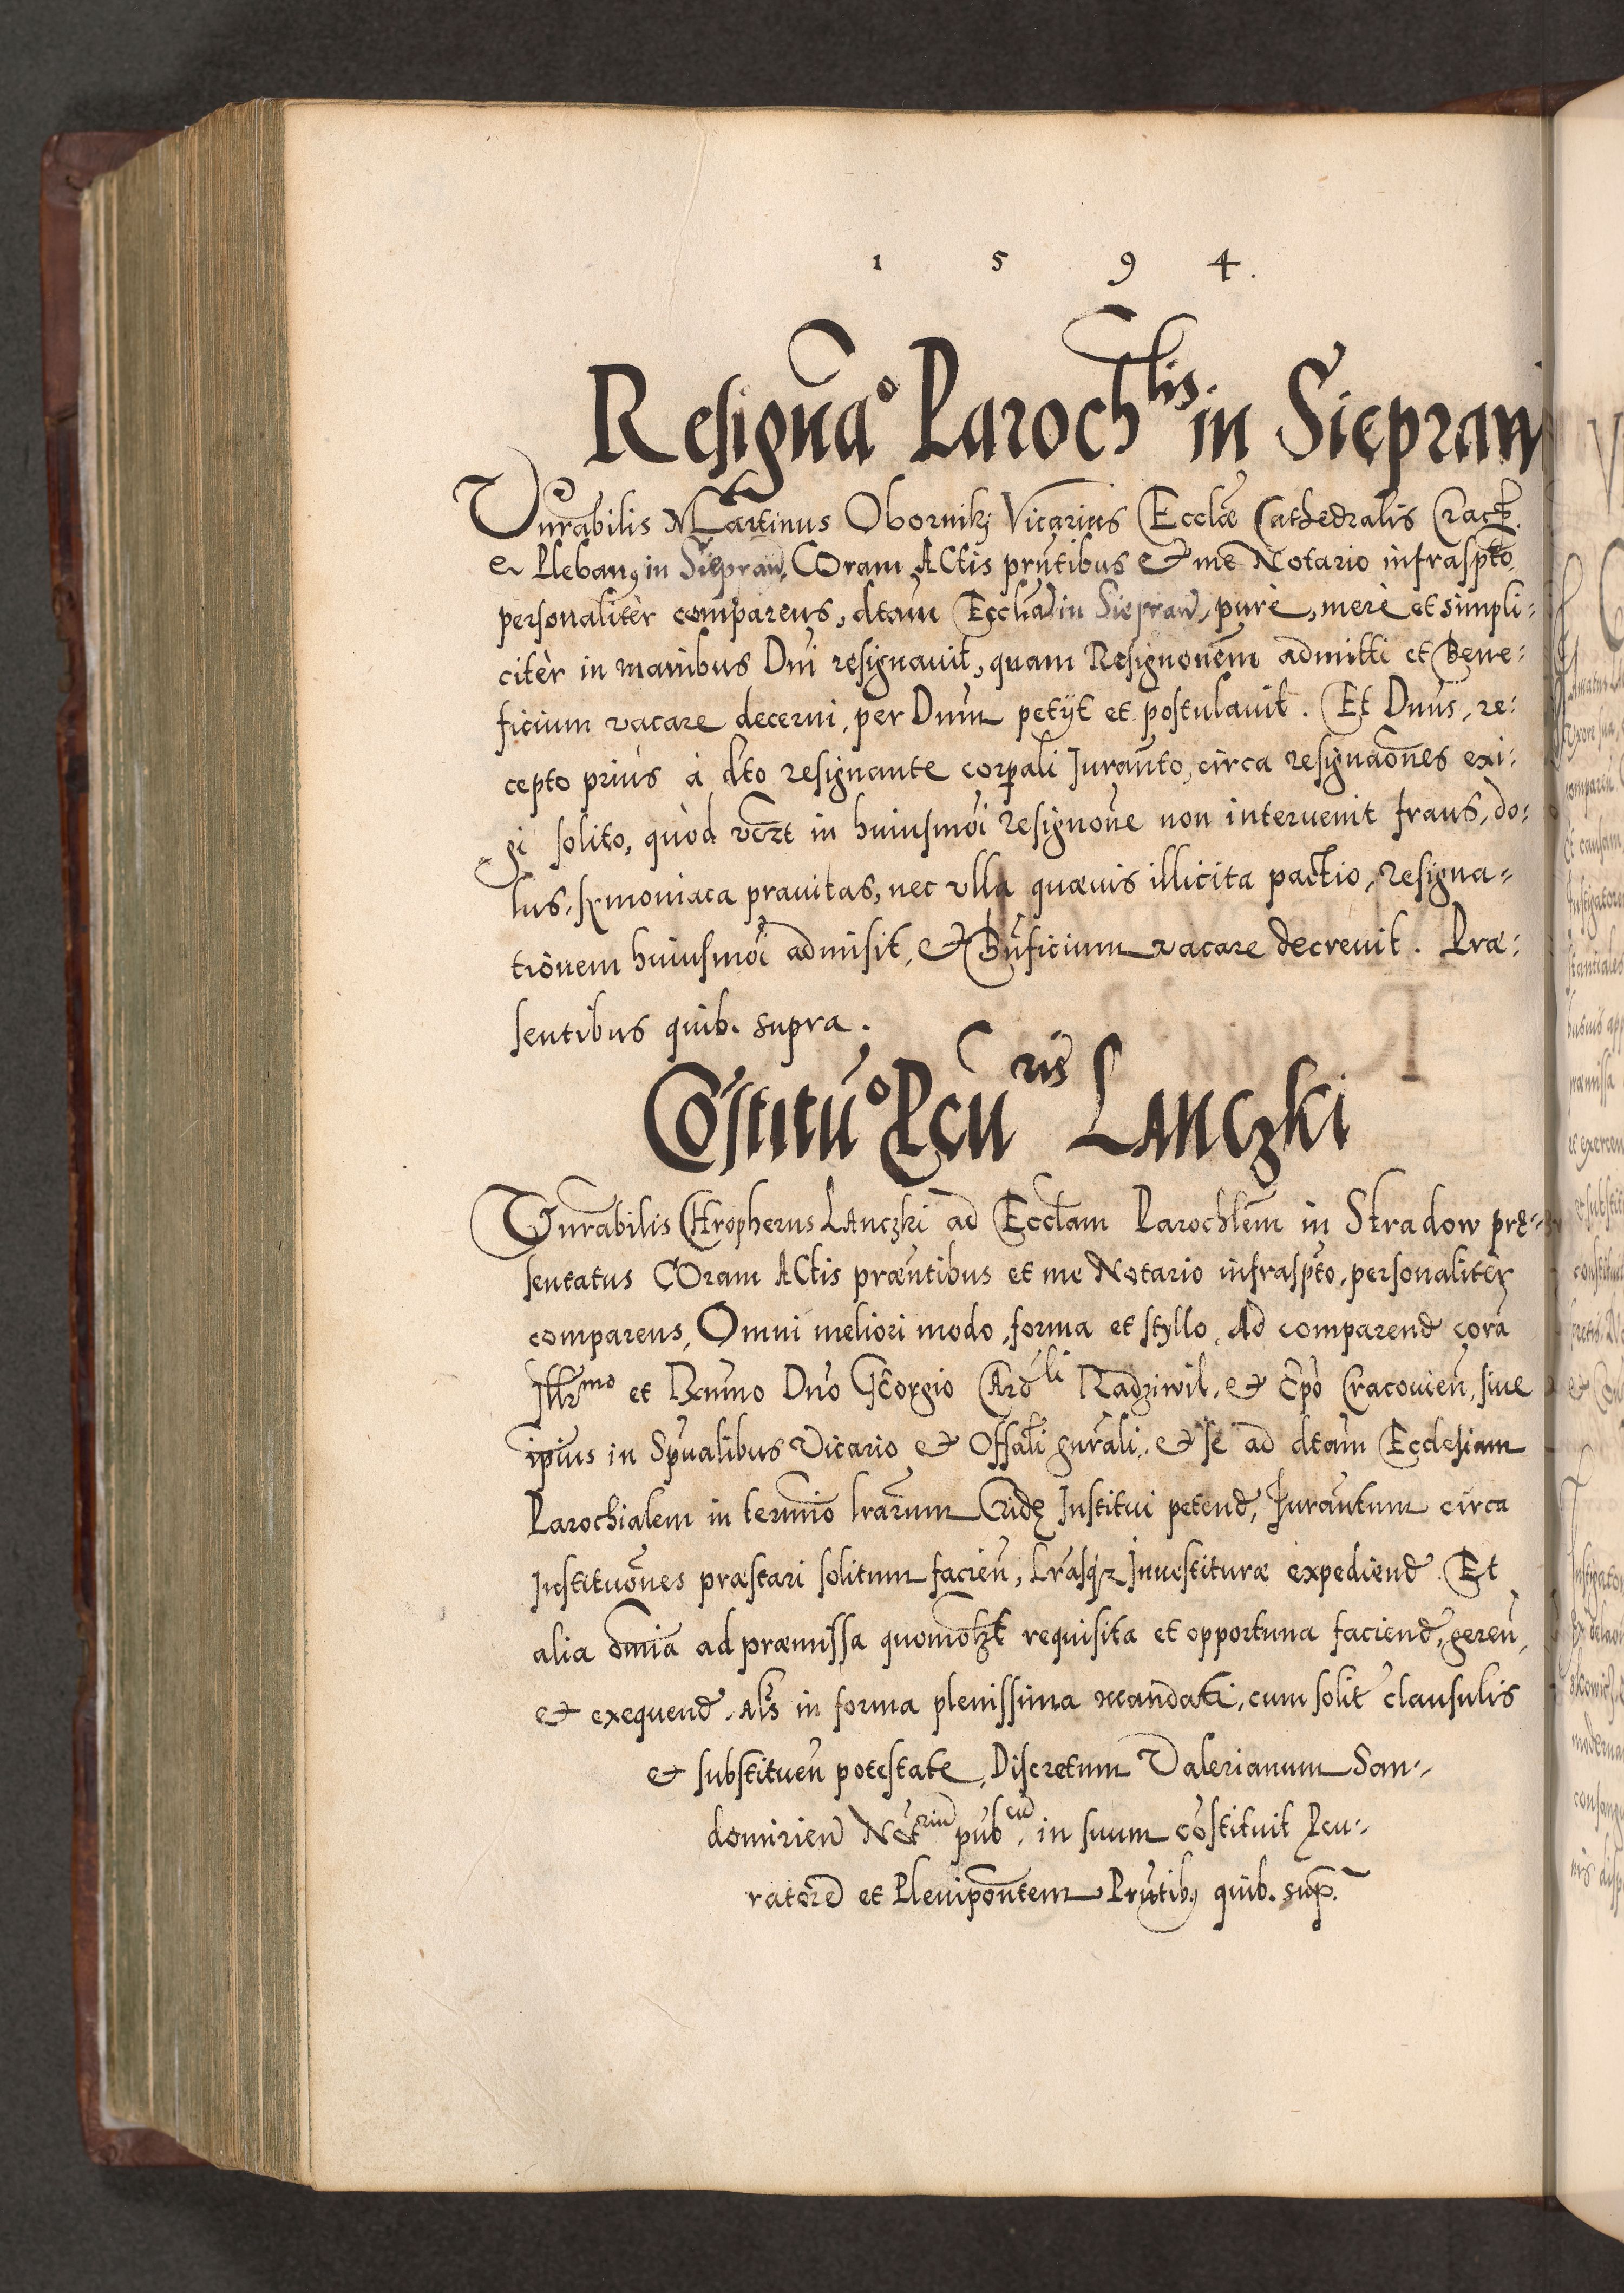 1 5 9 4.
Resignāo Parochlis in Siepraw
Vnrabilis Martinus Obornikj Vicarius Ecclæ Cathedralis Crac
et Pleban9 in Siepraw, Coram Actis pn̄tibus et me Notario infrasp̄to
personalitèr comparens, dtam Eccliā in Siepraw, purè, merè et simpli=
citèr in manibus Dn̄i resignauit, quam Resignon̄em admitti et Bene=
ficium vacare decerni, per Dnum petijt et postulauit. Et Dnus, re=
cepto priùs à dto resignante corp̄ali Iuran̄to, circa resignaōnes exi=
gi solito, quòd vczt in huiusmōi resignoñe non interuenit fraus, do=
lus, symoniaca prauitas, nec vlla quæuis illicita pactio, resigna=
tionem huiusmōi admisit, et Bn̄ficium vacare decreuit. Præ=
sentibus quib. supra.
Cōstitūo Pcūris Lanczki
Vnrabilis Chropherus Lanczki ad Ecclam Parochlem in Stradow præ=
sentatus Coram Actis præn̄tibus et me Notario infrasp̄to, personalitèr
comparens, Omni meliori modo, forma et styllo, Ad comparend corā
Illr̄mo et Rmmo Dn̄o Georgio Cardli Radziwil, et Ep̄o Cracouien, siue
ip̄ius in Sp̄ualibus Vicario et Offāli gnr̄ali, et se ad dtam Ecclesiam
Parochialem in termīo lrarum Cridę Institui petend, Iuran̄tum circa
Instituōnes præstari solitum facien̄, Lrasq3 Inuestituræ expediend. Et
alia om̄ia ad præmissa quomōlzt requisita et opportuna faciend, geren̄,
et exequend, Als in forma plenissima mandati, cum solit clausulis
et substituen̄ potestate, Discretum Valerianum San=
domirien Notriū pubcū, in suum cōstituit Pcu=
ratorē et Plenipon̄tem Pn̄tib9 quib. sup.